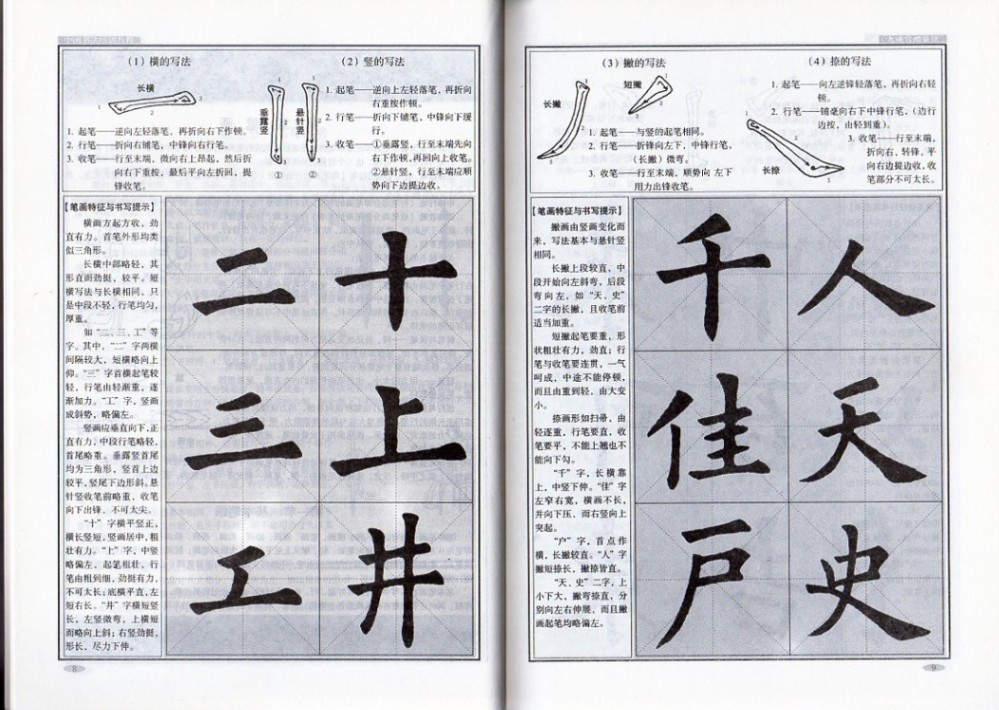 (1) 横的写法
长横
1. 起笔——逆向左轻落笔，再折向右下作顿。
2. 行笔——折向右铺笔，中锋向右行笔。
3. 收笔——行至末端，微向右上昂起，然后折
向右下重按，最后平向左折回，提
锋收笔。
(2) 竖的写法
垂露竖
悬针竖
①
②
1. 起笔——逆向上左轻落笔，再折向
右重按作顿。
2. 行笔——折向下铺笔，中锋向下缓
行。
3. 收笔——①垂露竖，行至末端先向
右下作顿，再回向上收笔。
②悬针竖，行至末端应顺
势向下边提边收。
【笔画特征与书写提示】
横画方起方收，劲
直有力。首笔外形均类
似三角形。
长横中部略轻，其
形直而劲挺，较平。短
横写法与长横相同，只
是中段不轻，行笔均匀，
厚重。
如“二、三、工”等
字。其中，“二”字两横
间隔较大，短横略向上
仰。“三”字首横起笔较
轻，行笔由轻渐重，逐
渐加力。“工”字，竖画
成斜势，略偏左。
竖画应垂直向下，正
直有力，中段行笔略轻，
首尾略重。垂露竖首尾
均为三角形，竖首上边
较平，竖尾下边形斜。悬
针竖收笔前略重，收笔
向下出锋，不可太尖。
“十”字横平竖正，
横长竖短，竖画居中，粗
壮有力。“上”字，中竖
略偏左，起笔粗壮，行
笔由粗到细，劲挺有力，
不可太长；底横平直，左
短右长。“井”字横短竖
长，左竖微弯，上横短
而略向上斜；右竖劲挺，
形长，尽力下伸。
二 十
三 上
工 井
8
(3) 撇的写法
长撇
短撇
1. 起笔——与竖的起笔相同。
2. 行笔——折锋向左下，中锋行笔，
（长撇）微弯。
3. 收笔——行至末端，顺势向 左下
用力出锋收笔。
(4) 捺的写法
长捺
1. 起笔——向左逆锋轻落笔，再折向右轻
顿。
2. 行笔——铺毫向右下中锋行笔，（边行
边按，由轻到重）。
3. 收笔——行至末端，
折向右、转锋，平
向右边提边收，收
笔部分不可太长。
【笔画特征与书写提示】
撇画由竖画变化而
来，写法基本与悬针竖
相同。
长撇上段较直，中
段开始向左斜弯，后段
弯向左，如“天、史”
二字的长撇，且收笔前
适当加重。
短撇起笔要重，形
状粗壮有力，劲直；行
笔与收笔要连贯，一气
呵成，中途不能停顿，
而且由重到轻，由大变
小。
捺画形如扫帚，由
轻逐重，行笔要直，收
笔要平，不能上翘也不
能向下勾。
“千”字，长横靠
上，中竖下伸。“佳”字
左窄右宽，横画不长，
并向下压，而右竖向上
突起。
“户”字，首点作
横，长撇较直。“人”字
撇短捺长，撇捺皆直。
“天、史”二字，上
小下大，撇弯捺直，分
别向左右伸展，而且撇
画起笔均略偏左。
千 人
佳 天
户 史
9